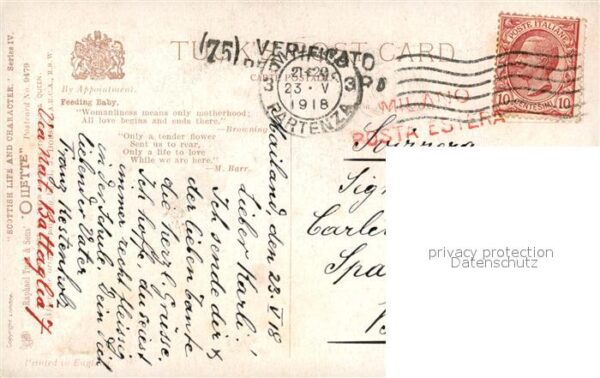 TUCK'S POST CARD
CARTE POSTALE
By Appointment.
Feeding Baby.
"Womanliness means only motherhood;
All love begins and ends there."
—Browning
"Only a tender flower
Sent us to rear,
Only a life to love
While we are here."
—M. Barr.
(75) VERIFICATO
23 · V
1918
PARTENZA
3 3
MILANO
POSTA ESTERA
POSTE ITALIANE
10 CENTESIMI 10
Mailand, den 23. V 18
Lieber Karli,
Ich sende dir &
der lieben Tante
die herzl. Grüsse.
Ich hoffe du seiest
immer recht fleissig
in der Schule. Dein dich
liebender Vater
Franz Restenholz
Via Nat. Battaglia 7
Sig
Carl
Spa
"SCOTTISH LIFE AND CHARACTER." Series IV.
"OILETTE" Postcard No. 9479
Raphael Tuck & Sons'
Copyright London.
Printed in Engl
privacy protection
Datenschutz